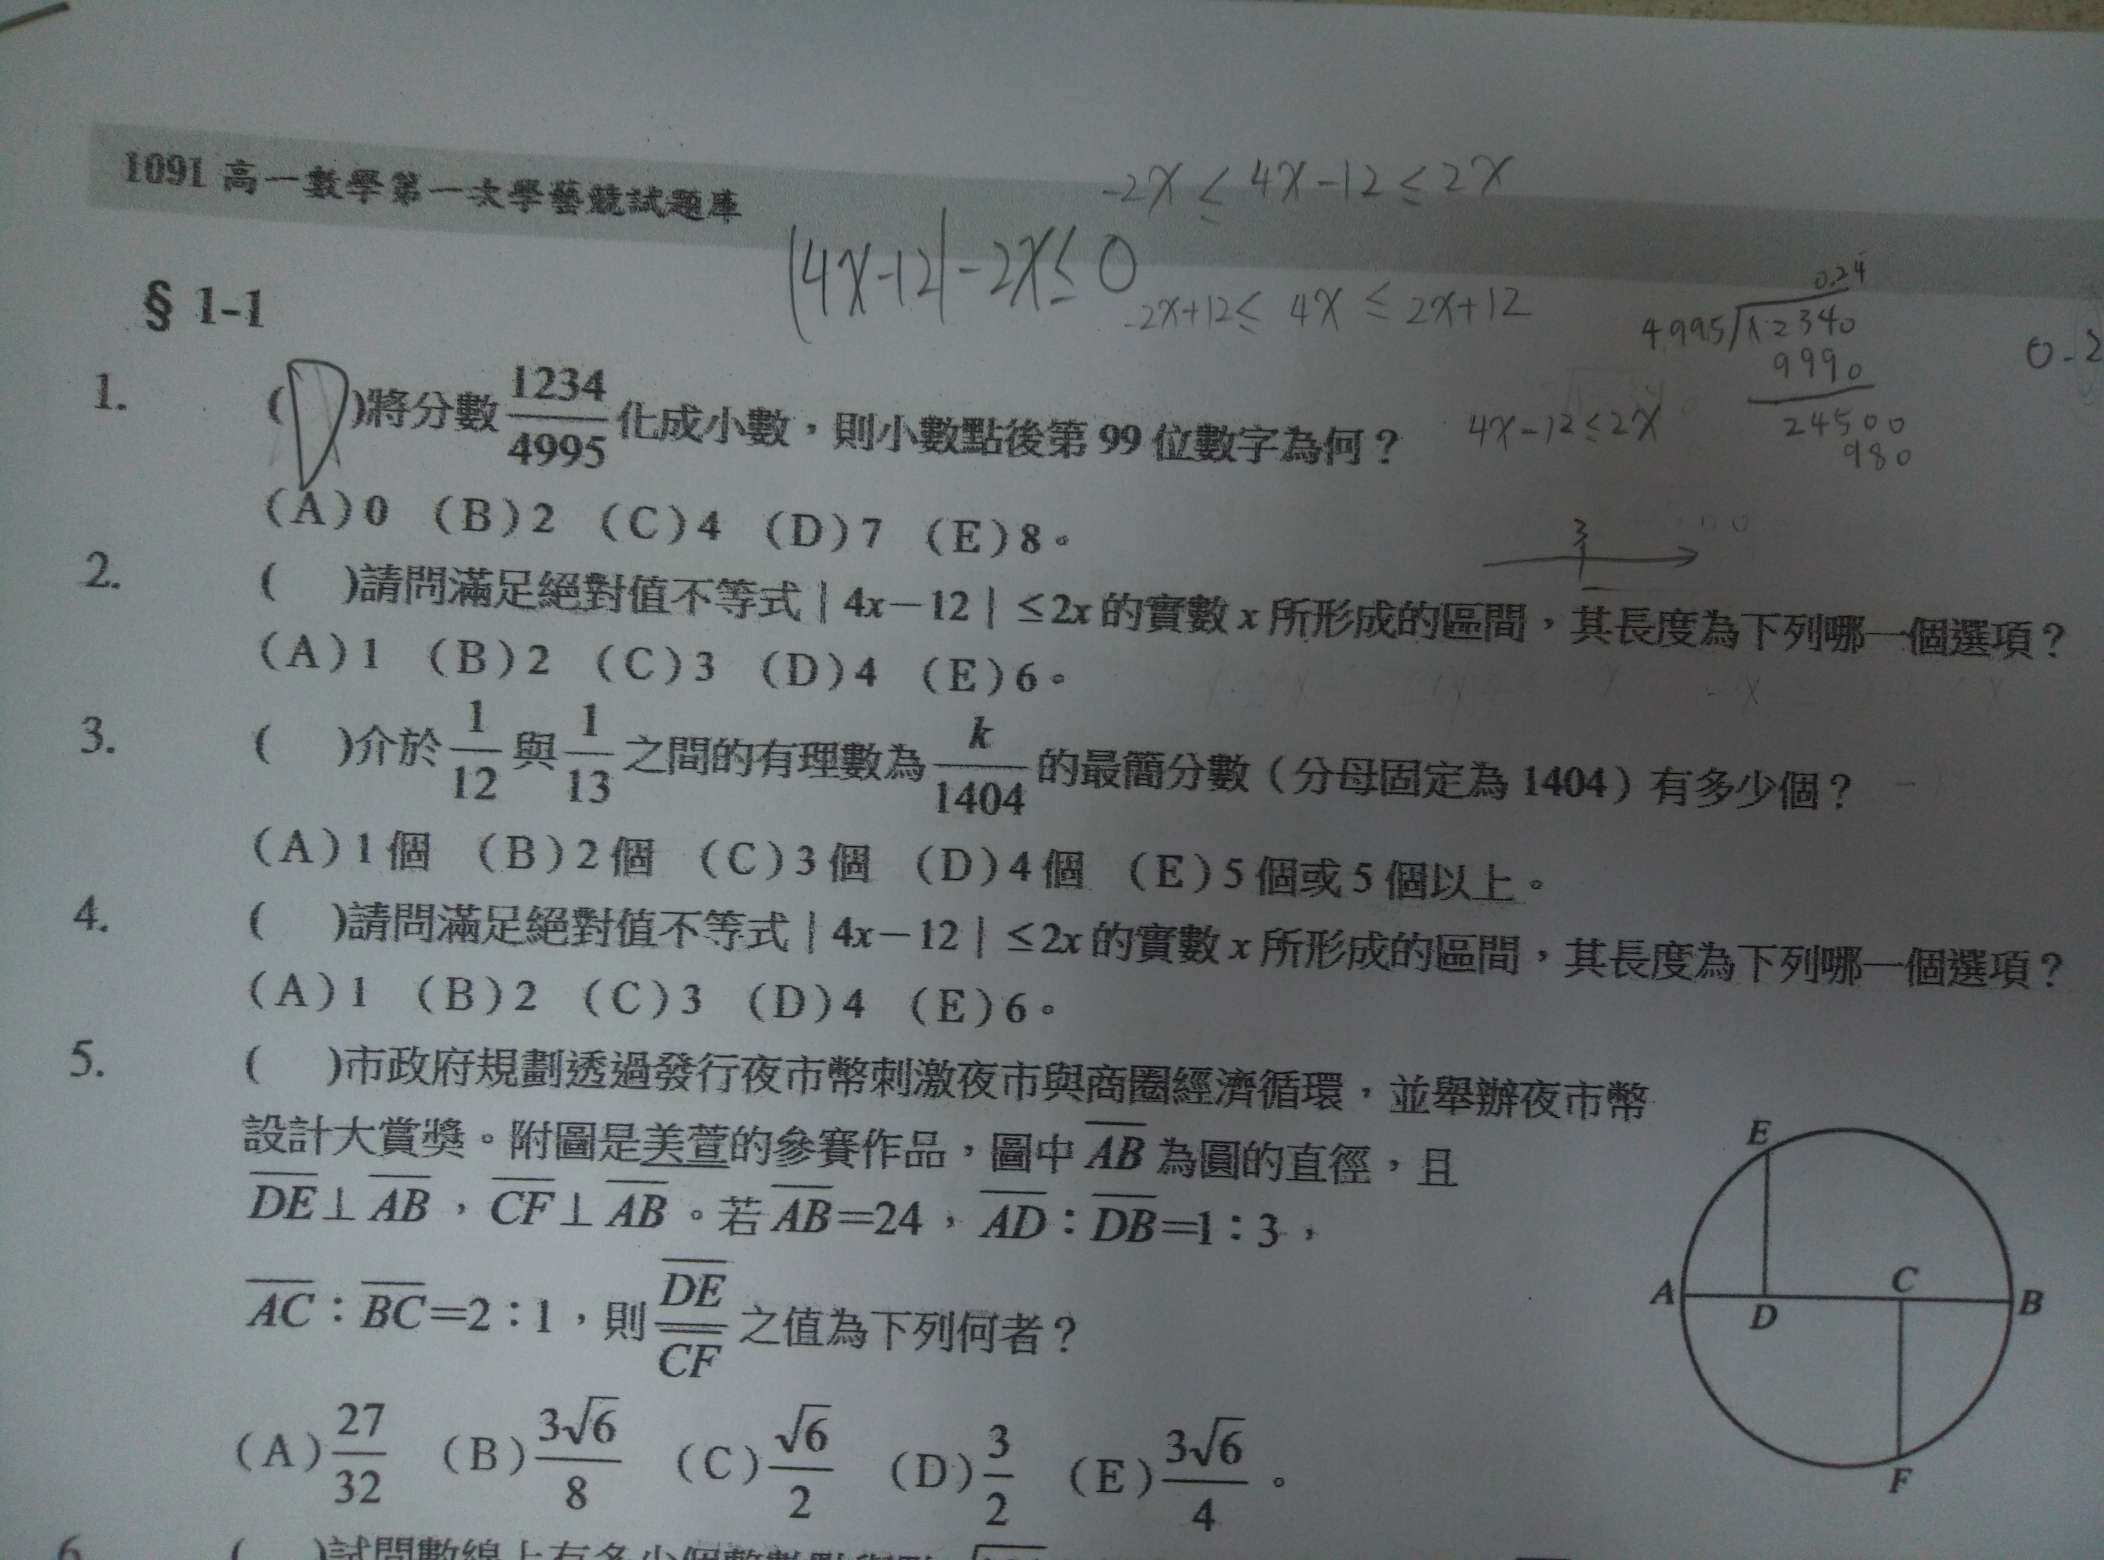 1091 高一數學第一次學藝競試題庫
-2x ≤ 4x-12 ≤ 2x
|4x-12|-2x≤0
-2x+12≤ 4x ≤ 2x+12
0.24
4995)12340
9990
24500
980
0.2
4x-12≤2x
3
§ 1-1
1. ( )將分數 1234/4995 化成小數，則小數點後第 99 位數字為何？
(A)0 (B)2 (C)4 (D)7 (E)8。
2. ( )請問滿足絕對值不等式 | 4x－12 | ≤2x 的實數 x 所形成的區間，其長度為下列哪一個選項？
(A)1 (B)2 (C)3 (D)4 (E)6。
3. ( )介於 1/12 與 1/13 之間的有理數為 k/1404 的最簡分數（分母固定為 1404）有多少個？
(A)1 個 (B)2 個 (C)3 個 (D)4 個 (E)5 個或 5 個以上。
4. ( )請問滿足絕對值不等式 | 4x－12 | ≤2x 的實數 x 所形成的區間，其長度為下列哪一個選項？
(A)1 (B)2 (C)3 (D)4 (E)6。
5. ( )市政府規劃透過發行夜市幣刺激夜市與商圈經濟循環，並舉辦夜市幣
設計大賞獎。附圖是美萱的參賽作品，圖中 AB 為圓的直徑，且
DE⊥AB，CF⊥AB。若 AB=24，AD：DB=1：3，
AC：BC=2：1，則 DE/CF 之值為下列何者？
(A) 27/32 (B) 3√6/8 (C) √6/2 (D) 3/2 (E) 3√6/4。
E
A
D
C
B
F
6. ( )試問數線上有多少個整數點與點